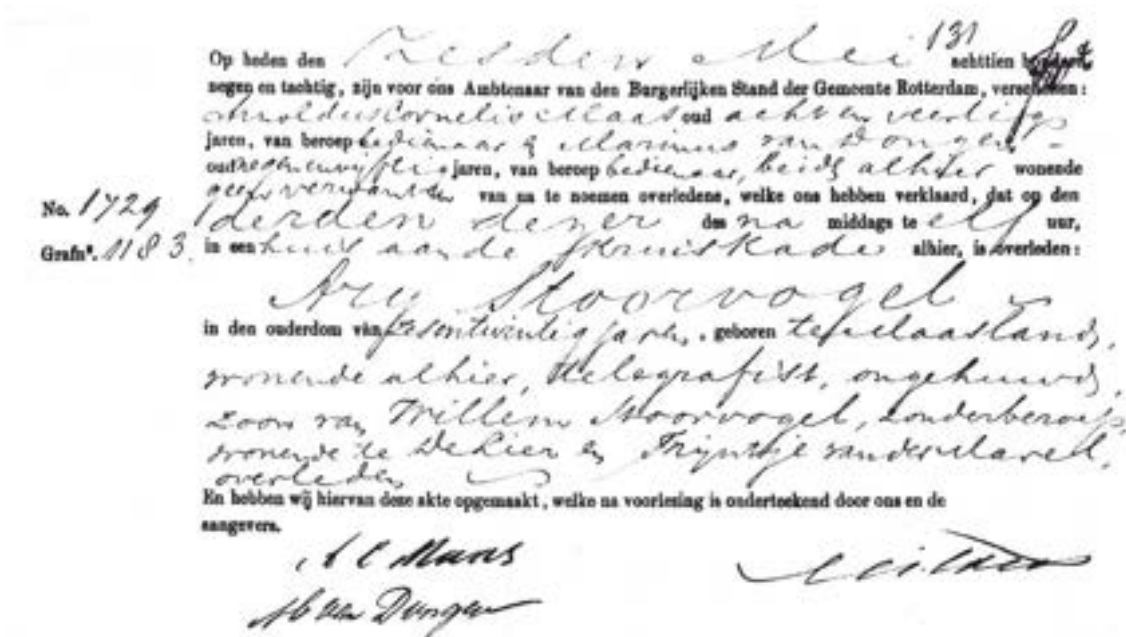 131
Op heden den Zesden Mei achttien honderd
negen en tachtig, zijn voor ons Ambtenaar van den Burgerlijken Stand der Gemeente Rotterdam, verschenen:
Arnoldus Cornelis Maas oud acht en veertig
jaren, van beroep bedienaar & Marinus van Dongen
oud negenenvijftig jaren, van beroep bedienaar, beide alhier wonende
geen verwanten van na te noemen overledene, welke ons hebben verklaard, dat op den
No. 1729 derden dezer des na middags te elf uur,
Grafn°. 1183. in een huis aan de Kruiskade alhier, is overleden:
Ary Stoorvogel
in den ouderdom van zesentwintig jaren, geboren te Maasland,
wonende alhier, telegrafist, ongehuwd,
zoon van Willem Stoorvogel, zonder beroep,
wonende te De Lier en Trijntje van der Marel,
overleden
En hebben wij hiervan deze akte opgemaakt, welke na voorlezing is onderteekend door ons en de
aangevers.
A C Maas
M van Dongen